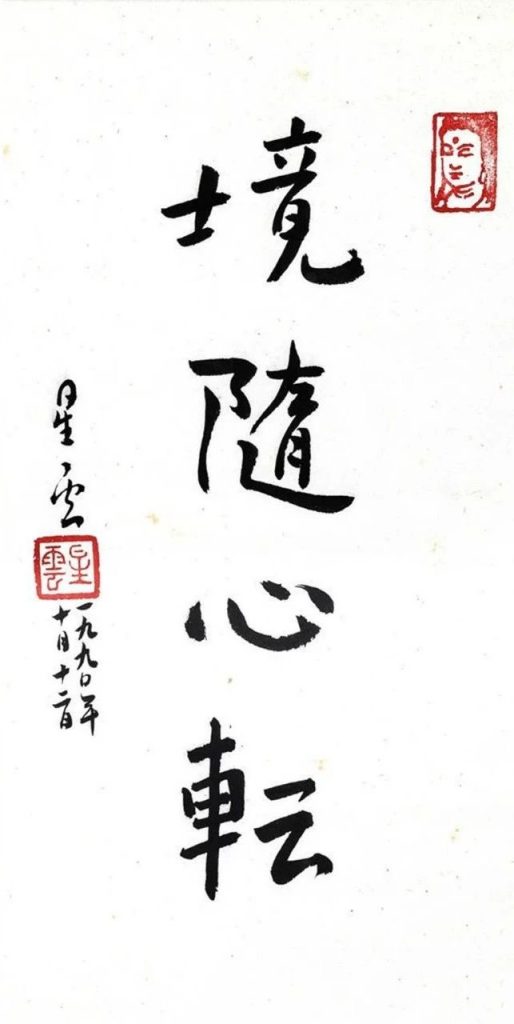 境隨心転
星云
星雲
一九九〇年
十月十二日